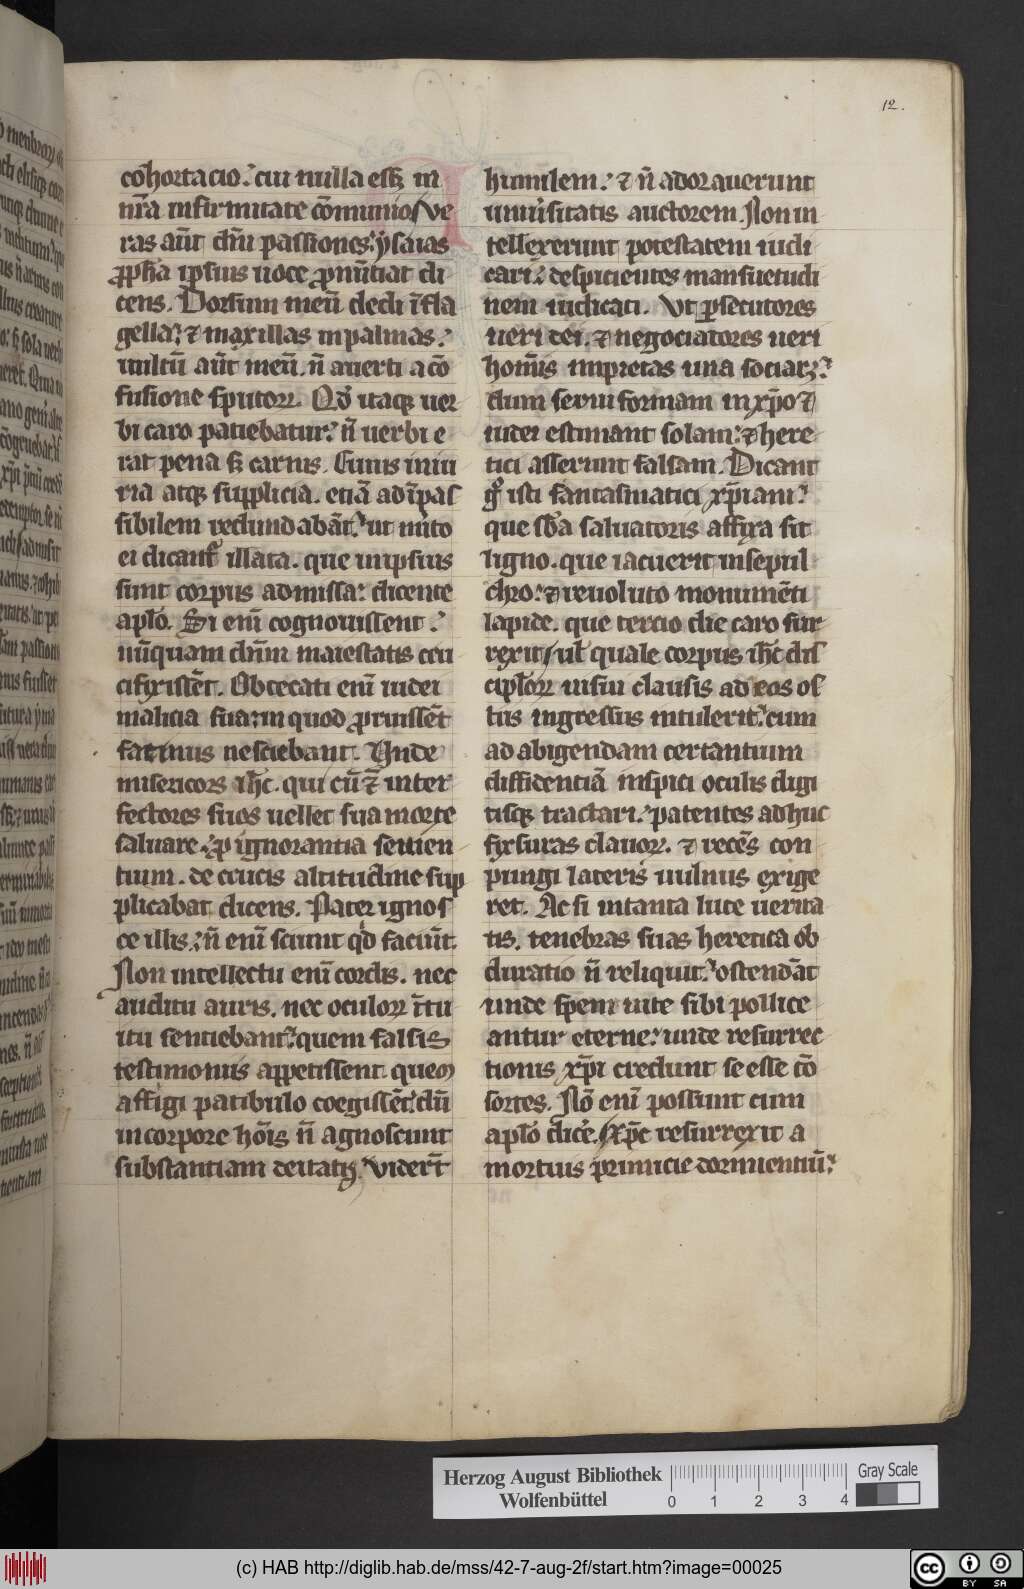 12.
cohortacio. cui nulla essꝫ in
nr̄a infirmitate cōmunio ve
ras aūt dn̄i passiones. ysaias
ꝓph̄a ipsius uoce ꝓnūtiat di
cens. Dorsum meū dedi ī fla
gella. ⁊ maxillas in palmas.
uultū aūt meū. n̄ auerti a cō
fusione sputoꝝ. Qd̄ itaqꝫ uer
bi caro patiebatur. n̄ uerbi e
rat pena sꝫ carnis. Cuius iniu
ria atqꝫ supplicia. etiā ad īpas
sibilem redundabāt. ut m̄ito
ei dicant᷑ illata. que in ipsius
sunt corpus admissa. dicente
apl̄o. Si enī cognouissent.
nūquam dn̄m maiestatis cru
cifixissēt. Obcecati enī iudei
malicia sua. in quod ꝓruissēt
facinus nesciebant. Unde
misericors ih̄c. qui cū ⁊ inter
fectores suos uellet sua morte
saluare. ꝓ ignorantia seuien
tium. de crucis altitudine sup
plicabat dicens. Pater ignos
ce illis. n̄ enī sciunt qd̄ faciūt.
Non intellectu enī cordis. nec
auditu auris. nec oculoꝝ ītu
itu sentiebant. quem falsis
testimoniis appetissent. quem
affigi patibulo coegissēt. dū
in corpore hōis n̄ agnoscunt
substantiam deitatis. Viderūt
humilem. ⁊ n̄ adorauerunt
uniūsitatis auctorem. Non in
tellexerunt potestatem iudi
cari. despicientes mansuetudi
nem iudicati. Ut ꝑsecutores
ueri dei. ⁊ negociatores ueri
hom̄is impietas una sociaꝫ.
dum serui formam in xp̄o ⁊
iudei estimant solam. ⁊ here
tici asserunt falsam. Dicant
gͦ isti fantasmatici xp̄iani.
que sb̄a saluatoris affixa sit
ligno. que iacuerit in sepul
chro. ⁊ reuoluto monumēti
lapide. que tercio die caro sur
rexit ul̄ quale corpus ih̄c dis
cipl̄oꝝ uisui clausis ad eos os
tiis ingressus intulerit. cum
ad abigendam certantium
diffidentiā inspici oculis digi
tisqꝫ tractari. patentes adhuc
fixsuras clauoꝝ. ⁊ recēs con
pungi lateris uulnus exige
ret. Ac si in tanta luce uerita
tis. tenebras suas heretica ob
duratio n̄ reliquit. ostendāt
unde sp̄em uite sibi pollice
antur eterne. unde resurrec
tionis xp̄i credunt se esse cō
sortes. Nō enī possunt cum
apl̄o dicē. Xp̄c resurrexit a
mortuis primicie dormientiū.
Herzog August Bibliothek
Wolfenbüttel
0 1 2 3 4
Gray Scale
(c) HAB http://diglib.hab.de/mss/42-7-aug-2f/start.htm?image=00025
cc BY SA